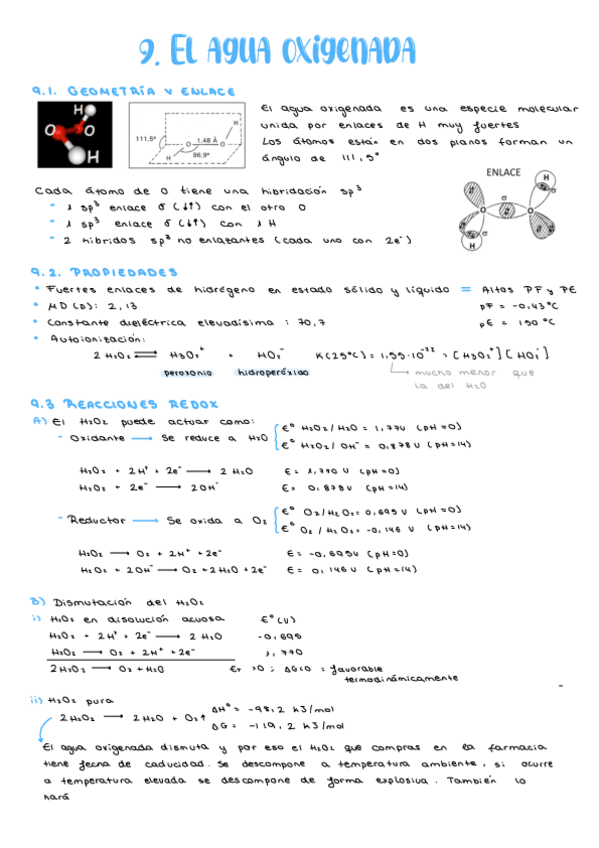 9. EL AGUA OXIGENADA
9.1. GEOMETRÍA Y ENLACE
H
O O
H
111,5°
H
1,48 Å
O O
96,9°
H
El agua oxigenada es una especie molecular
unida por enlaces de H muy fuertes
Los átomos están en dos planos forman un
ángulo de 111,5°
Cada átomo de O tiene una hibridación sp³
- 1 sp³ enlace σ (↓↑) con el otro O
- 1 sp³ enlace σ (↓↑) con 1 H
- 2 híbridos sp³ no enlazantes (cada uno con 2e⁻)
ENLACE
H
σ
O σ O
σ
H
9.2. PROPIEDADES
• Fuertes enlaces de hidrógeno en estado sólido y líquido = Altos PF y PE
• μD (D): 2,13 PF = -0,43°C
• Constante dieléctrica elevadísima : 70,7 PE = 150°C
• Autoionización:
2 H₂O₂ ⇌ H₃O₂⁺ + HO₂⁻ K(25°C) = 1,55·10⁻¹² = [H₃O₂⁺][HO₂⁻]
peroxonio hidroperóxido mucho menor que
la del H₂O
9.3 REACCIONES REDOX
A) El H₂O₂ puede actuar como:
- Oxidante → Se reduce a H₂O
E° H₂O₂/H₂O = 1,77V (pH=0)
E° H₂O₂/OH⁻ = 0,878V (pH=14)
H₂O₂ + 2H⁺ + 2e⁻ → 2 H₂O E = 1,770 V (pH=0)
H₂O₂ + 2e⁻ → 2OH⁻ E= 0,878V (pH=14)
- Reductor → Se oxida a O₂
E° O₂/H₂O₂= 0,695 V (pH=0)
E° O₂/H₂O₂= -0,146 V (pH=14)
H₂O₂ → O₂ + 2H⁺ + 2e⁻ E = -0,695V (pH=0)
H₂O₂ + 2OH⁻ → O₂ + 2H₂O + 2e⁻ E = 0,146V (pH=14)
B) Dismutación del H₂O₂
i) H₂O₂ en disolución acuosa E°(V)
H₂O₂ + 2H⁺ + 2e⁻ → 2 H₂O -0,695
H₂O₂ → O₂ + 2H⁺ + 2e⁻ 1,770
2H₂O₂ → O₂ + H₂O ET >0 ; ΔG<0 = favorable
termodinámicamente
ii) H₂O₂ pura
2H₂O₂ → 2H₂O + O₂↑
ΔH° = -98,2 KJ/mol
ΔG = -119,2 KJ/mol
El agua oxigenada dismuta y por eso el H₂O₂ que compras en la farmacia
tiene fecha de caducidad. Se descompone a temperatura ambiente, si ocurre
a temperatura elevada se descompone de forma explosiva. También lo
hará